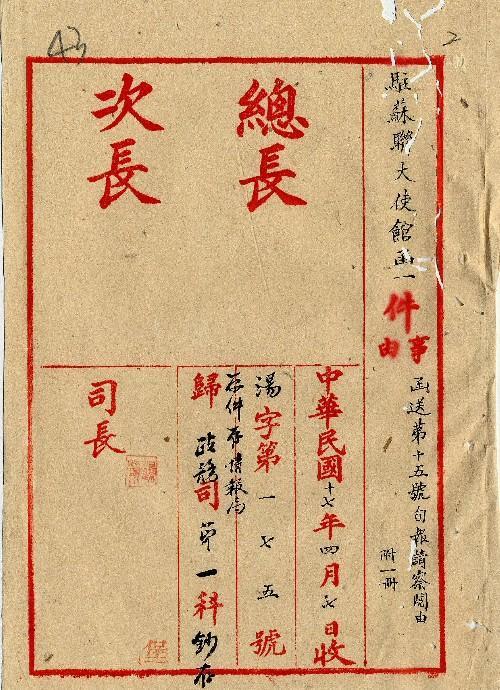 43
2
駐蘇聯大使館函一件
事由
函送第十五號旬報請察閱由
附一冊
總長
次長
中華民國十七年四月七日收
湯字第一七五號
原件存情報局
歸政務司第一科鈔存
司長